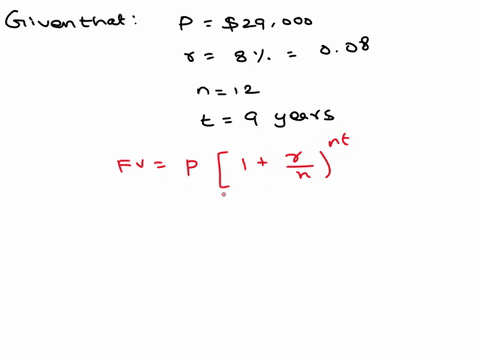 Given that: P = $29,000
r = 8% = 0.08
n = 12
t = 9 years
FV = P [ 1 + r/n )^nt